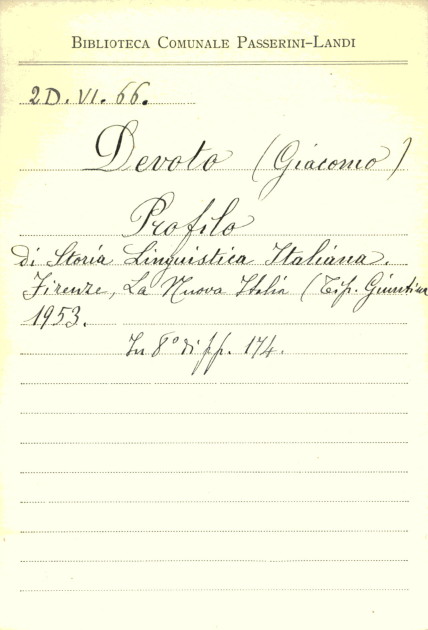 BIBLIOTECA COMUNALE PASSERINI-LANDI
2D. VI. 66.
Devoto (Giacomo)
Profilo
di Storia Linguistica Italiana.
Firenze, La Nuova Italia (Tip. Giuntina
1953.
In 8º di pp. 174.